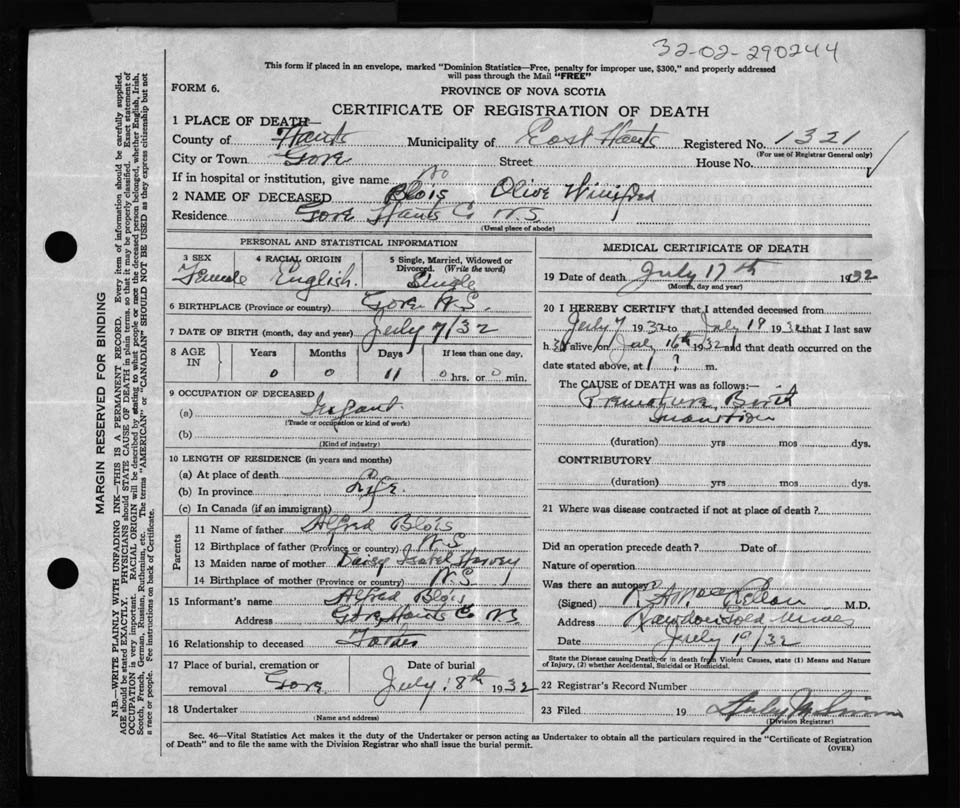 32-02-290244
This form if placed in an envelope, marked "Dominion Statistics—Free, penalty for improper use, $300," and properly addressed
will pass through the Mail "FREE"
FORM 6.
PROVINCE OF NOVA SCOTIA
CERTIFICATE OF REGISTRATION OF DEATH
1 PLACE OF DEATH—
County of Hants Municipality of East Hants Registered No. 1321
(For use of Registrar General only)
City or Town Gore Street House No.
If in hospital or institution, give name No
2 NAME OF DECEASED Blois Olive Winifred
Residence Gore Hants Co N.S.
(Usual place of abode)
PERSONAL AND STATISTICAL INFORMATION
3 SEX 4 RACIAL ORIGIN 5 Single, Married, Widowed or
Divorced. (Write the word)
Female English. Single
6 BIRTHPLACE (Province or country) Gore N.S.
7 DATE OF BIRTH (month, day and year) July 7/32
8 AGE IN Years Months Days If less than one day,
0 0 11 0 hrs. or 0 min.
9 OCCUPATION OF DECEASED
(a) Infant
(Trade or occupation or kind of work)
(b)
(Kind of industry)
10 LENGTH OF RESIDENCE (in years and months)
(a) At place of death
(b) In province Life.
(c) In Canada (if an immigrant)
Parents
11 Name of father Alfred Blois
12 Birthplace of father (Province or country) N.S.
13 Maiden name of mother Daisy Isabel Harvey
14 Birthplace of mother (Province or country) N.S.
15 Informant's name Alfred Blois
Address Gore Hants Co N.S.
16 Relationship to deceased Father
17 Place of burial, cremation or Date of burial
removal Gore July 18th 1932
18 Undertaker
(Name and address)
MEDICAL CERTIFICATE OF DEATH
19 Date of death July 17th 1932
(Month, day and year)
20 I HEREBY CERTIFY that I attended deceased from
July 7 1932 to July 19 1932 that I last saw
h alive on July 16th 1932 and that death occurred on the
date stated above, at 1 ? m.
The CAUSE OF DEATH was as follows:—
Premature Birth
Inanition
(duration) yrs mos dys.
CONTRIBUTORY
(duration) yrs mos dys.
21 Where was disease contracted if not at place of death?
Did an operation precede death? Date of
Nature of operation
Was there an autopsy?
(Signed) M.D.
Address Rawdon Gold Mines
Date July 19/32
State the Disease causing Death, or in death from Violent Causes, state (1) Means and Nature
of Injury, (2) whether Accidental, Suicidal or Homicidal.
22 Registrar's Record Number
23 Filed 19
(Division Registrar)
Sec. 46—Vital Statistics Act makes it the duty of the Undertaker or person acting as Undertaker to obtain all the particulars required in the "Certificate of Registration
of Death" and to file the same with the Division Registrar who shall issue the burial permit.
(OVER)
MARGIN RESERVED FOR BINDING
N.B.—WRITE PLAINLY WITH UNFADING INK—THIS IS A PERMANENT RECORD. Every item of information should be carefully supplied.
AGE should be stated EXACTLY. PHYSICIANS should STATE CAUSE OF DEATH in plain terms, so that it may be properly classified. Exact statement of
OCCUPATION is very important. RACIAL ORIGIN will be described by stating to what people or race the deceased person belonged, whether English, Irish,
Scotch, French, German, Russian, Ruthenian, etc. The terms "AMERICAN" or "CANADIAN" SHOULD NOT BE USED as they express citizenship but not
a race or people. See instructions on back of Certificate.